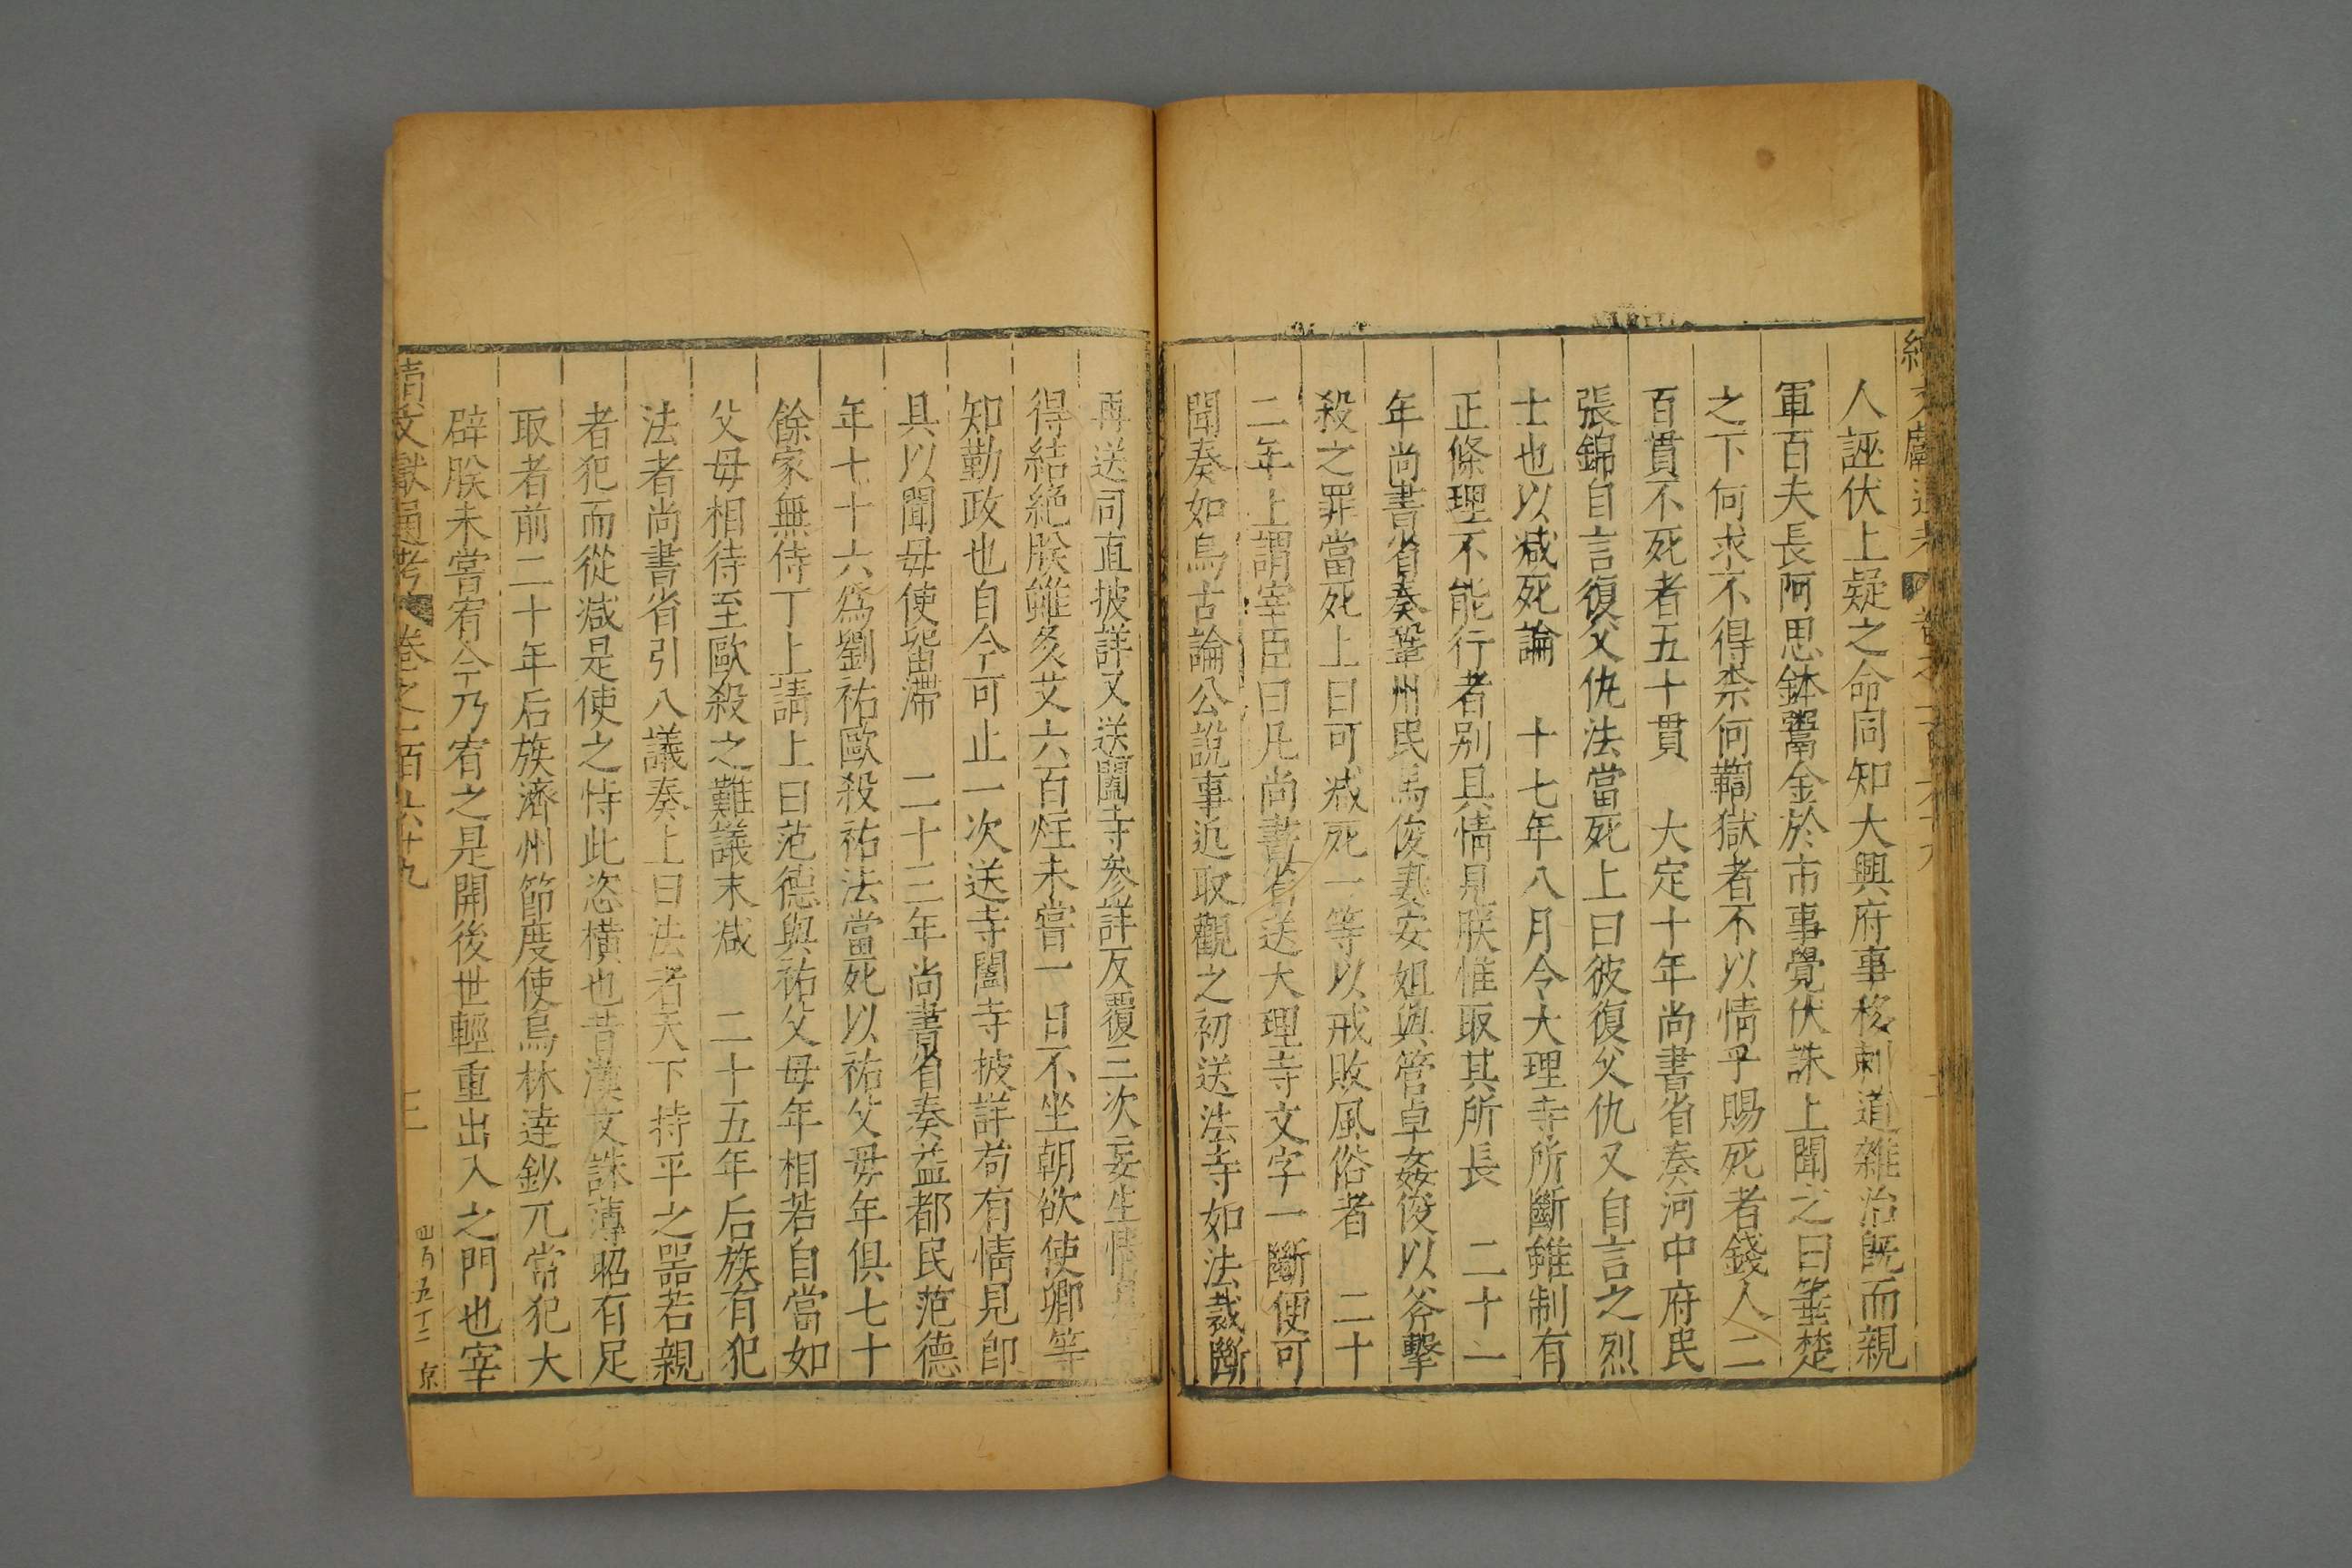 人誣伏上疑之命同知大興府事移剌道雜治旣而親
軍百夫長阿思鉢鬻金於市事覺伏誅上聞之曰箠楚
之下何求不得柰何鞫獄者不以情乎賜死者錢人二
百貫不死者五十貫　大定十年尚書省奏河中府民
張錦自言復父仇法當死上曰彼復父仇又自言之烈
士也以减死論　十七年八月令大理寺所斷雖制有
正條理不能行者别具情見朕惟取其所長　二十一
年尚書省奏鞏州民馬俊妻安姐與管卓姦俊以斧擊
殺之罪當死上曰可减死一等以戒敗風俗者　二十
二年上謂宰臣曰凡尚書省送大理寺文字一斷便可
聞奏如烏古論公說事近取觀之初送法寺如法裁斷
再送司直披詳又送闔寺參詳反覆三次妄生情
得結絶朕雖灸艾六百炷未嘗一日不坐朝欲使卿等
知勤政也自今可止一次送寺闔寺披詳苟有情見卽
具以聞毋使留滯　二十三年尚書省奏益都民范德
年七十六爲劉祐歐殺祐法當死以祐父毋年俱七十
餘家無侍丁上請上曰范德與祐父母年相若自當如
父母相待至歐殺之難議末减　二十五年后族有犯
法者尚書省引八議奏上曰法者天下持平之噐若親
者犯而從减是使之恃此恣横也昔漢文誅薄昭有足
取者前二十年后族濟州節度使烏林達鈔兀常犯大
辟朕未嘗宥今乃宥之是開後世輕重出入之門也宰
文獻通考　卷之二百六十九　三　四百五十二　京